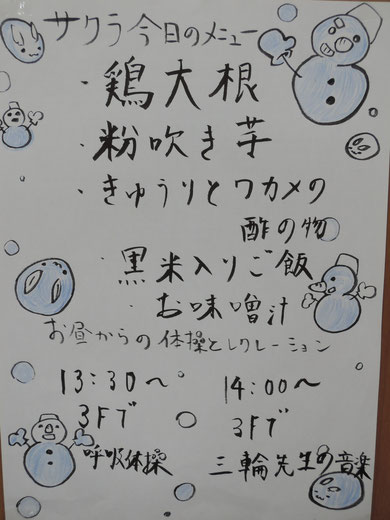 サクラ今日のメニュー
・鶏大根
・粉吹き芋
・きゅうりとワカメの
酢の物
・黒米入りご飯
・お味噌汁
お昼からの体操とレクレーション
13:30〜 14:00〜
3Fデ 3Fデ
呼吸体操 三輪先生の音楽